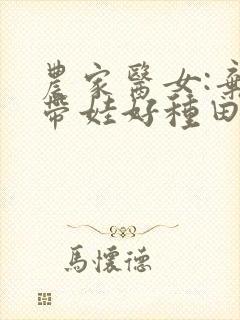 農家醫女:棄
帶娃好種田
馬懷德